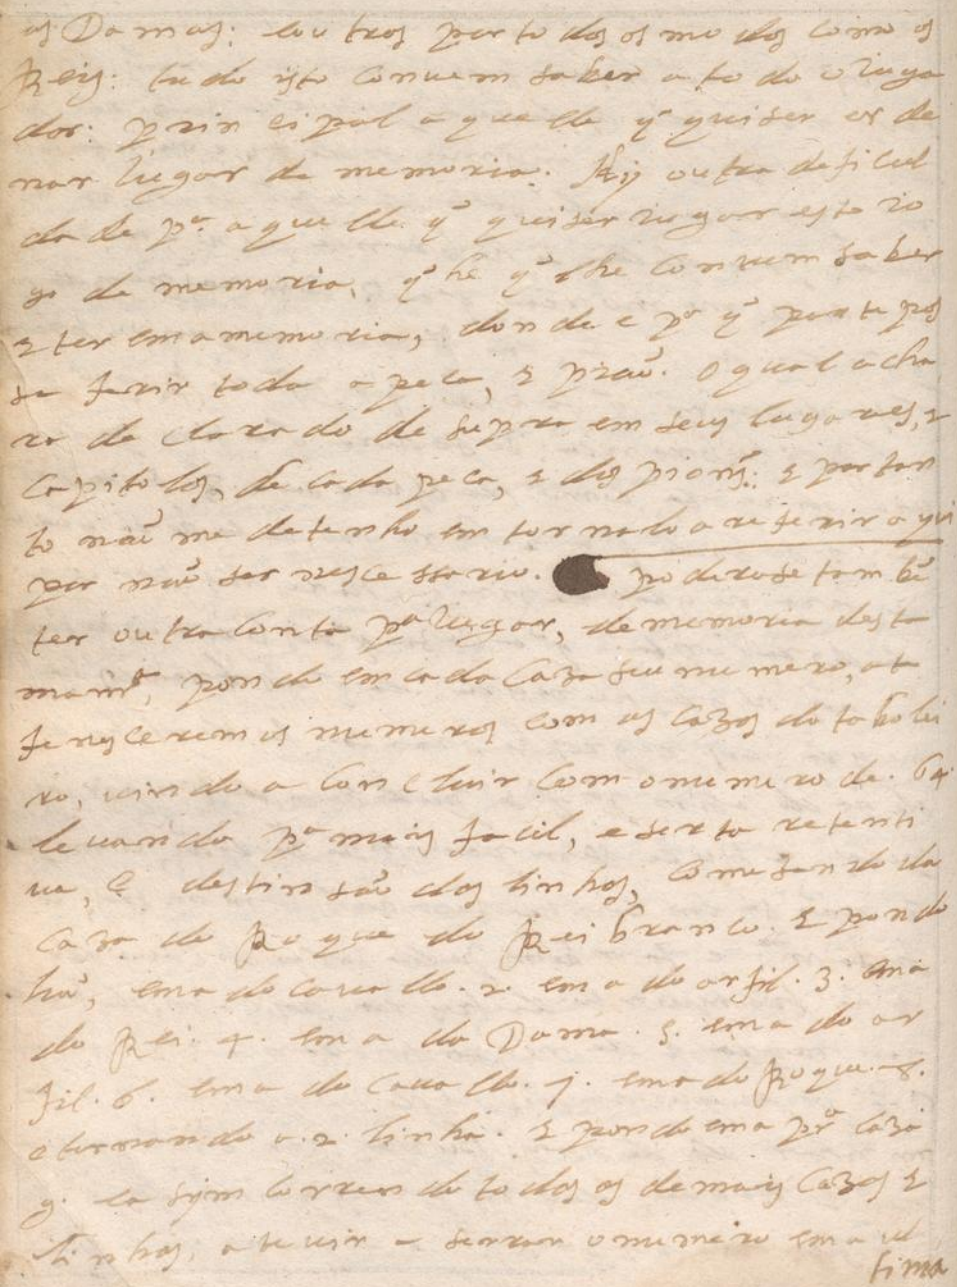 as Damas: e outros por todos os modos como os
Reis: tudo isto conuem saber a todo o iuga
dor: prin cipal aquelle q̃ quiser orde
nar iugar de memoria. Hŷ outra deficul
dade pª. aquelle. q̃ quiser iugar esto io
go de memoria, q̃ he q̃ lhe conuem saber
& ter em a memoria, donde e pª q̃ parte pos
sa ferir toda a peca, & piaõ. O qual acha
ra declarado de supra em seus lugares, &
capitolos, de cada peca, & dos pions̃: & por tan
to naũ me detenho em tornalo a referir aqui
por naũ ser nescessario. poderase tambẽ
ter outra conta pª iugar, de memoria desta
manrª, pondo em cada caza seu numero, ate
fenescerem os numeros com as cazas do tabolei
ro, uindo a concluir com o numero de. 64.
leuando pª mais facil, e serta retenti
ua, e destinsaũ das linhas, comesando da
caza do Roque do Rei branco. & pondo
hũ, em a do cauallo. 2. em a do arfil. 3. em a
do Rei. 4. em a da Dama. 5. em a do ar
fil. 6. em a do cauallo. 7. em a do Roque. 8.
e tornando a. 2. linha. & pondo em a prª caza
9. e a sym correndo todas as demais cazas &
linhas, ate uir a serrar o numero em a ul
tima